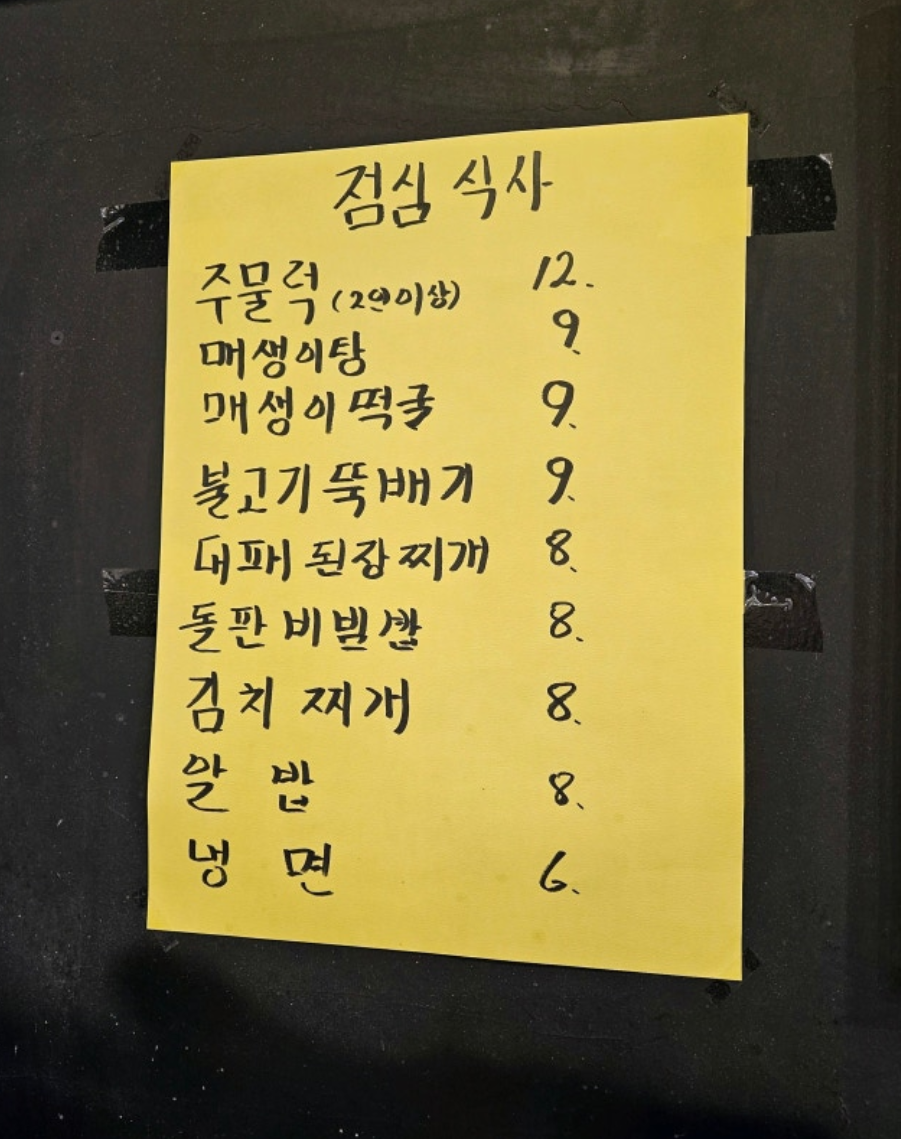 점심 식사
주물럭 (2인이상) 12.
매생이탕 9.
매생이떡국 9.
불고기뚝배기 9.
대파 된장찌개 8.
돌판 비빔밥 8.
김치 찌개 8.
알 밥 8.
냉 면 6.